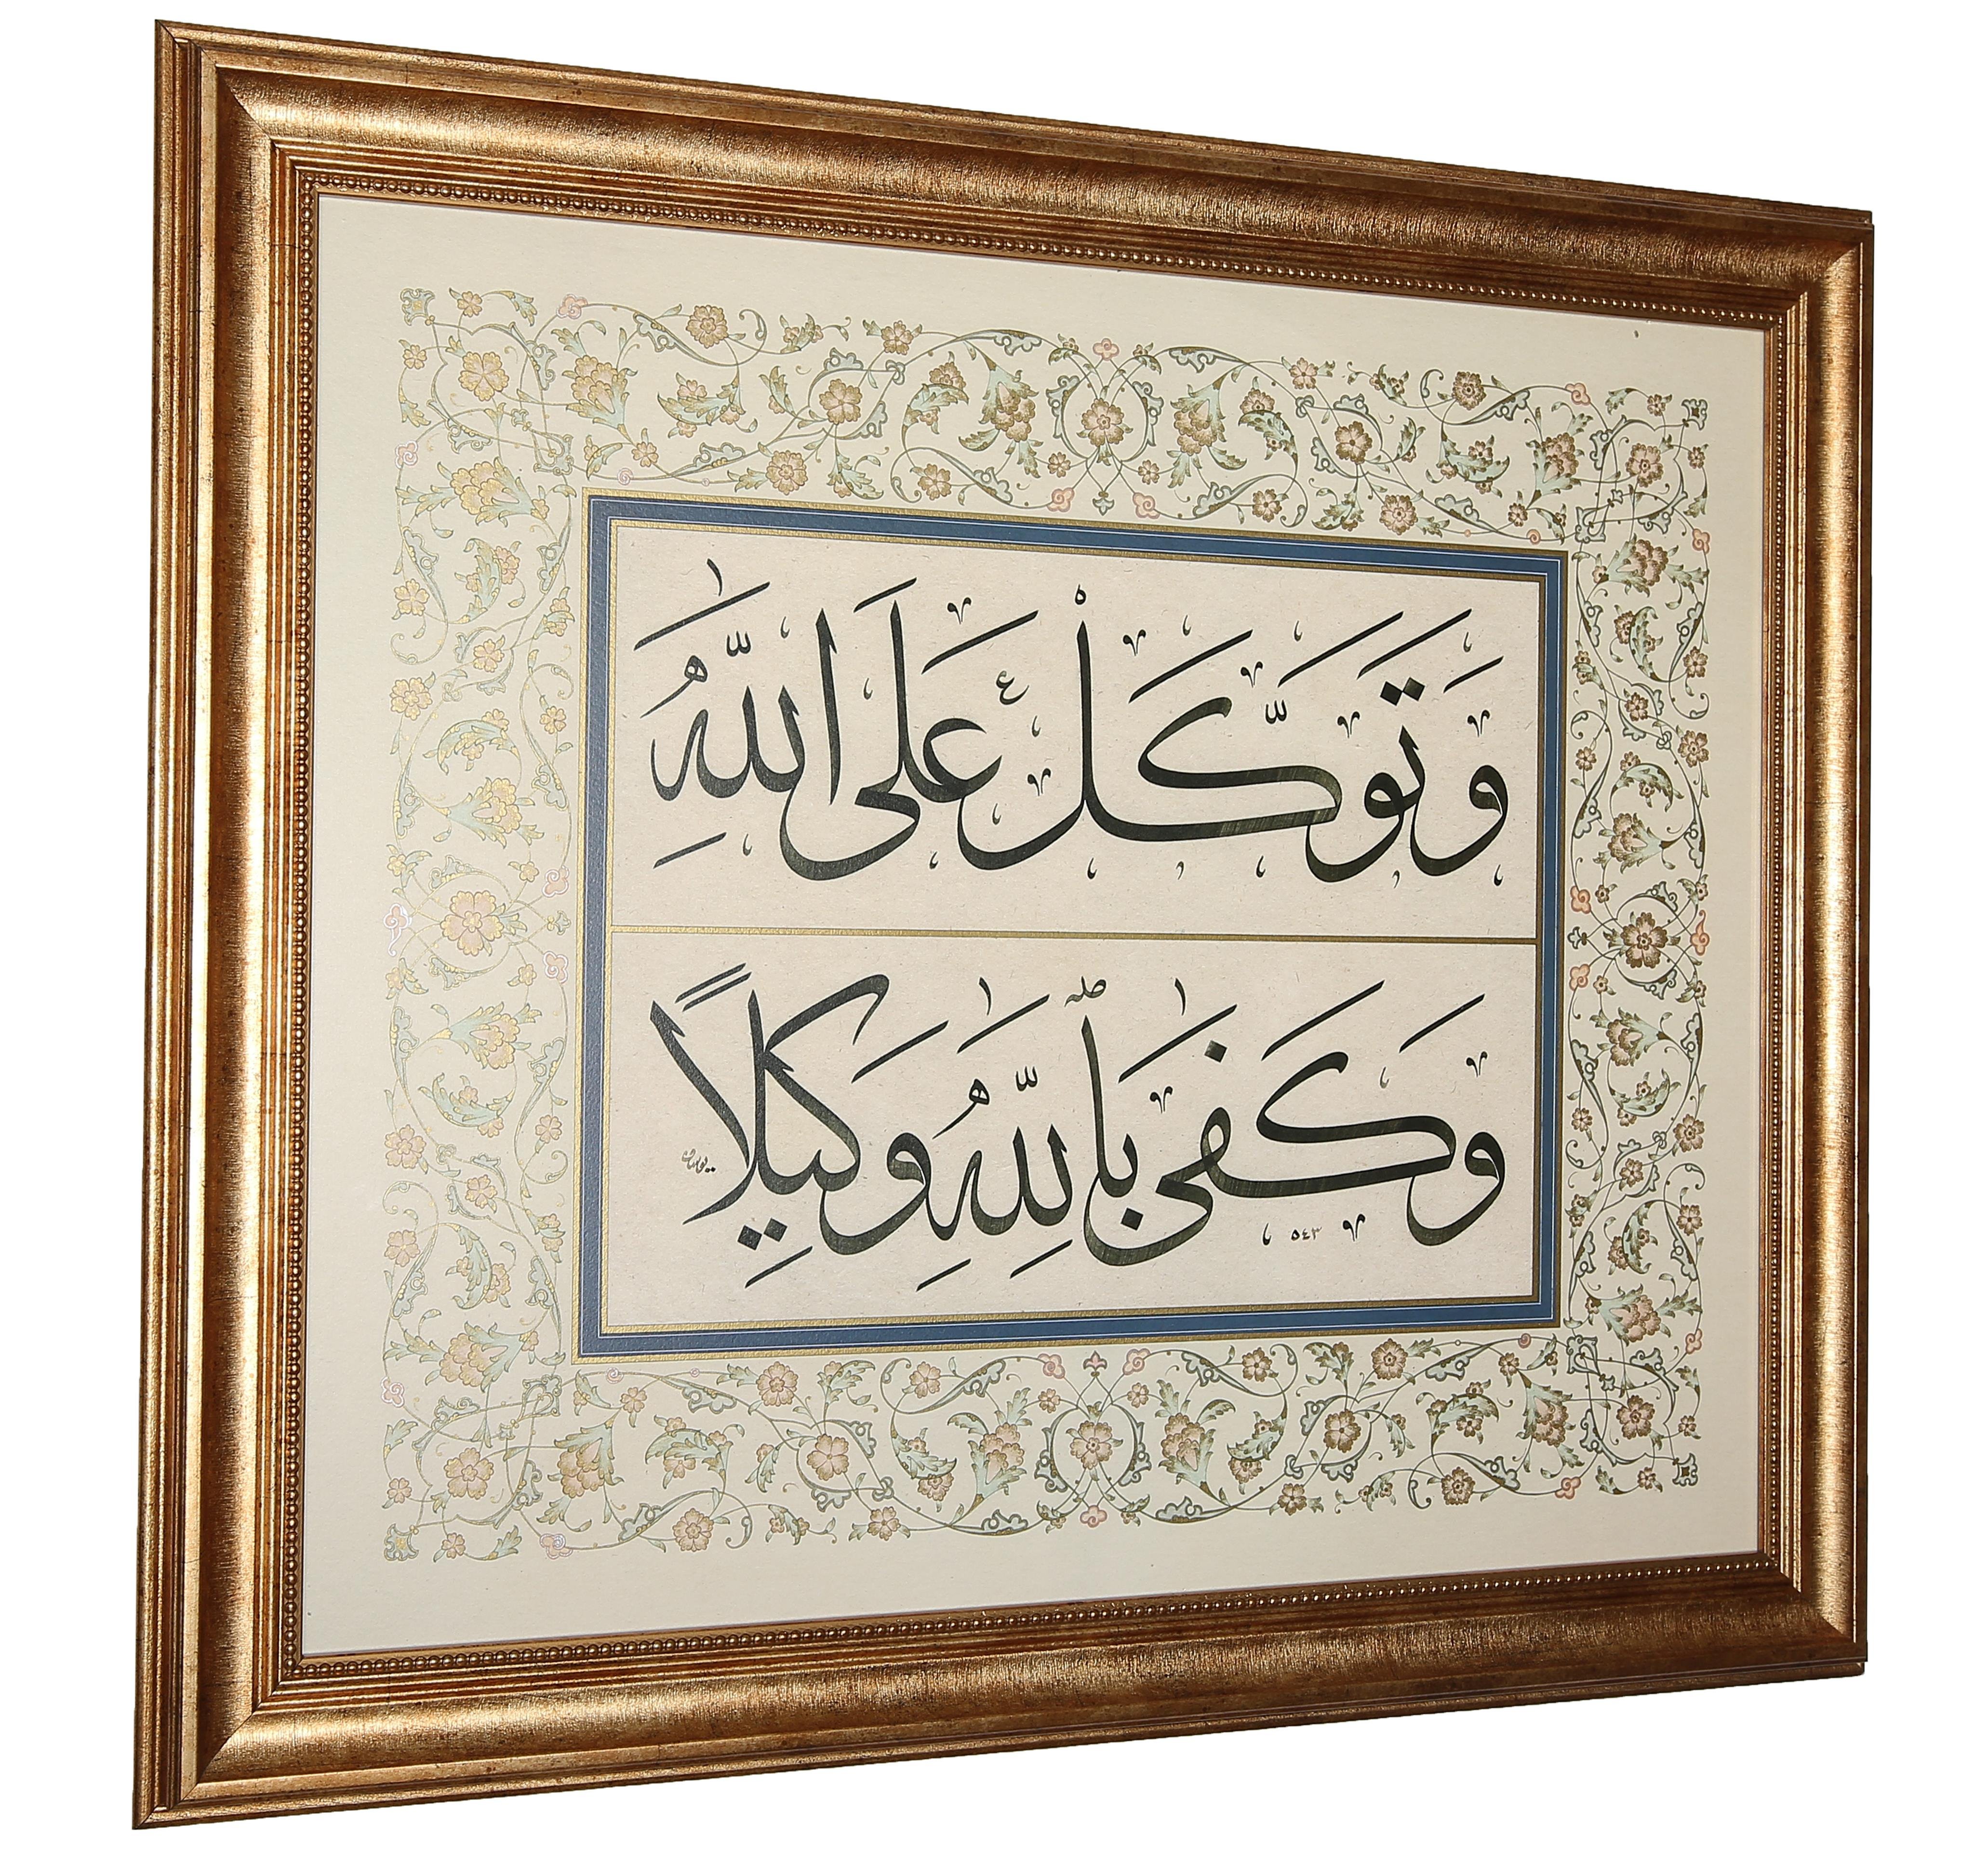 وَتَوَكَّلْ عَلَى اللّٰهِ
وَكَفٰى بِاللّٰهِ وَكِيلاً
٥٤٣